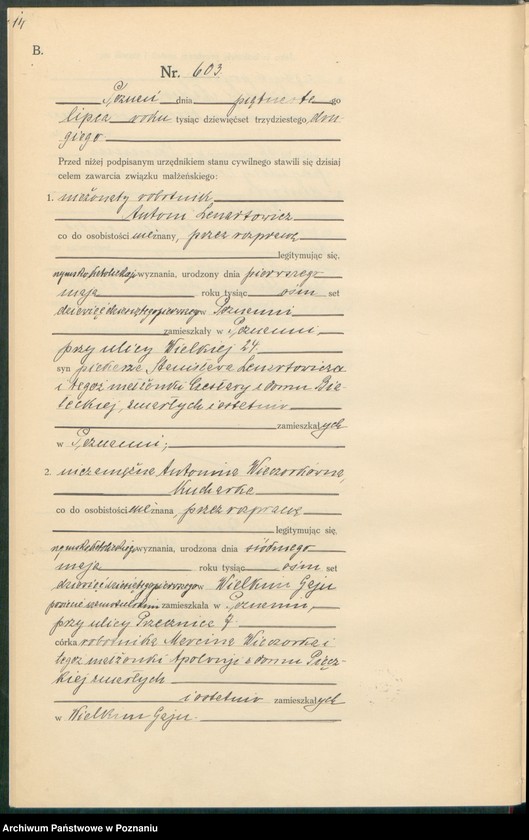 14
B.
Nr. 603.
Poznań dnia piętnastego
lipca roku tysiąc dziewięćset trzydziestego dru-
giego
Przed niżej podpisanym urzędnikiem stanu cywilnego stawili się dzisiaj
celem zawarcia związku małżeńskiego:
1. nieżonaty robotnik
Antoni Lenartowicz
co do osobistości nieznany, przez rozprawę
legitymując się.
rzymskokatolickiego wyznania, urodzony dnia pierwszego
maja roku tysiąc ośm set
dziewięćdziesiątego pierwszego w Poznaniu
zamieszkały w Poznaniu,
przy ulicy Wielkiej 24,
syn piekarza Stanisława Lenartowicza
i tegoż małżonki z domu
zmarłych i ostatnio
zamieszkałych
w Poznaniu;
2. niezamężna Antonina Wieczorkówna,
kucharka
co do osobistości nieznana, przez rozprawę
legitymując się.
rzymskokatolickiego wyznania, urodzona dnia siódmego
maja roku tysiąc ośm set
dziewięćdziesiątego pierwszego w Wielkim Gaju
powiat zamieszkała w Poznaniu,
przy ulicy 7
córka robotnika Marcina Wieczorka i
tegoż małżonki Apolonji z domu
zmarłych
i ostatnio zamieszkałych
w Wielkim Gaju.
Archiwum Państwowe w Poznaniu